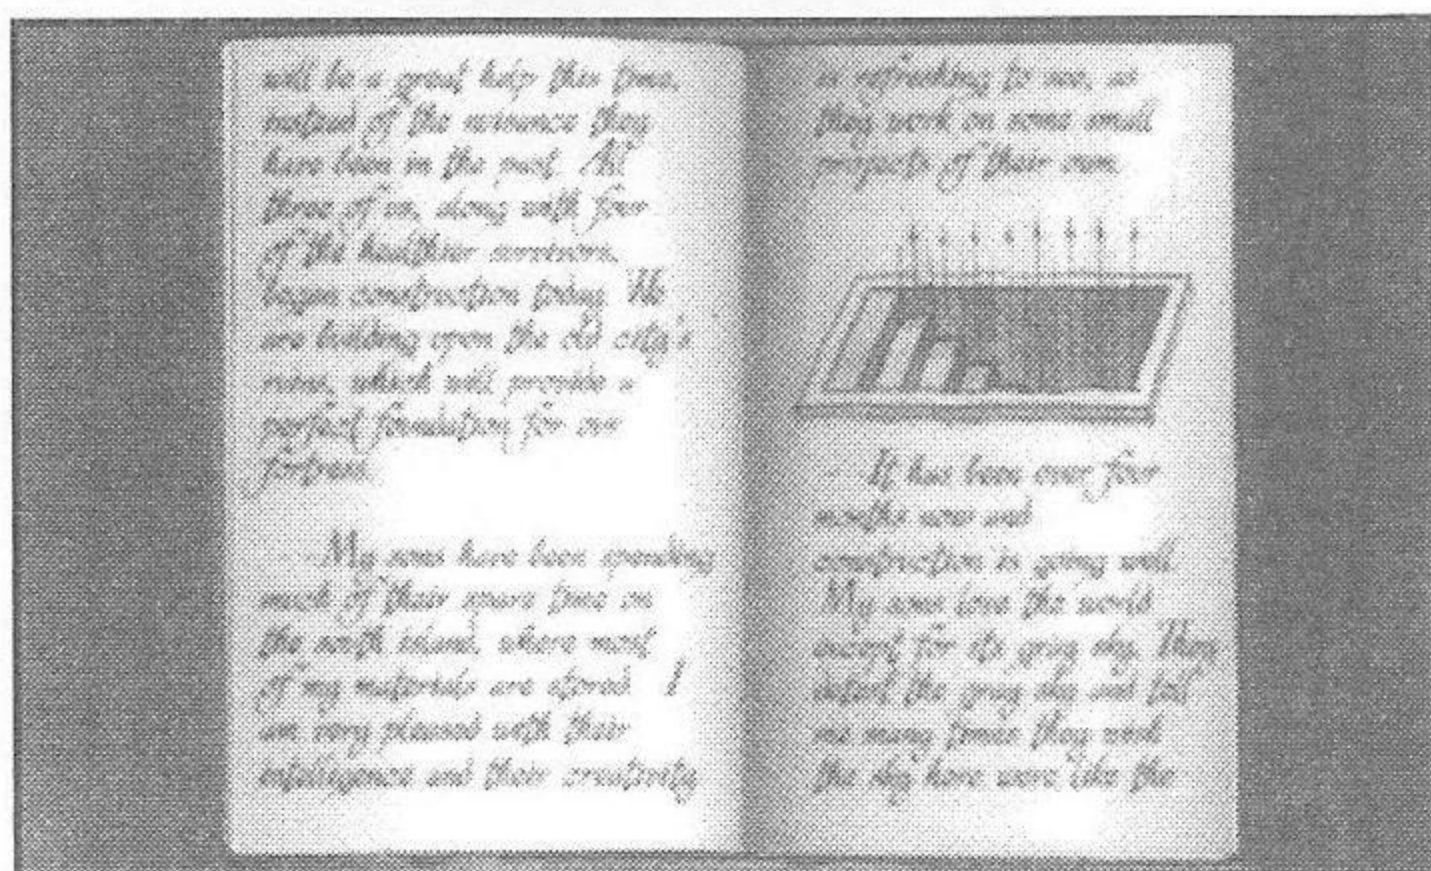 will be a great help this time,
instead of the nuisance they
have been in the past. All
three of us, along with four
of the healthier survivors,
began construction today. We
are building upon the old city's
ruins, which will provide a
perfect foundation for our
fortress.
My sons have been spending
much of their spare time on
the south island, where most
of my materials are stored. I
am very pleased with their
intelligence and their creativity
is refreshing to see, as
they work on some small
projects of their own.
It has been over four
months now and
construction is going well.
My sons love the world
except for its gray sky. They
detest the gray sky and tell
me many times they wish
the sky here were like the